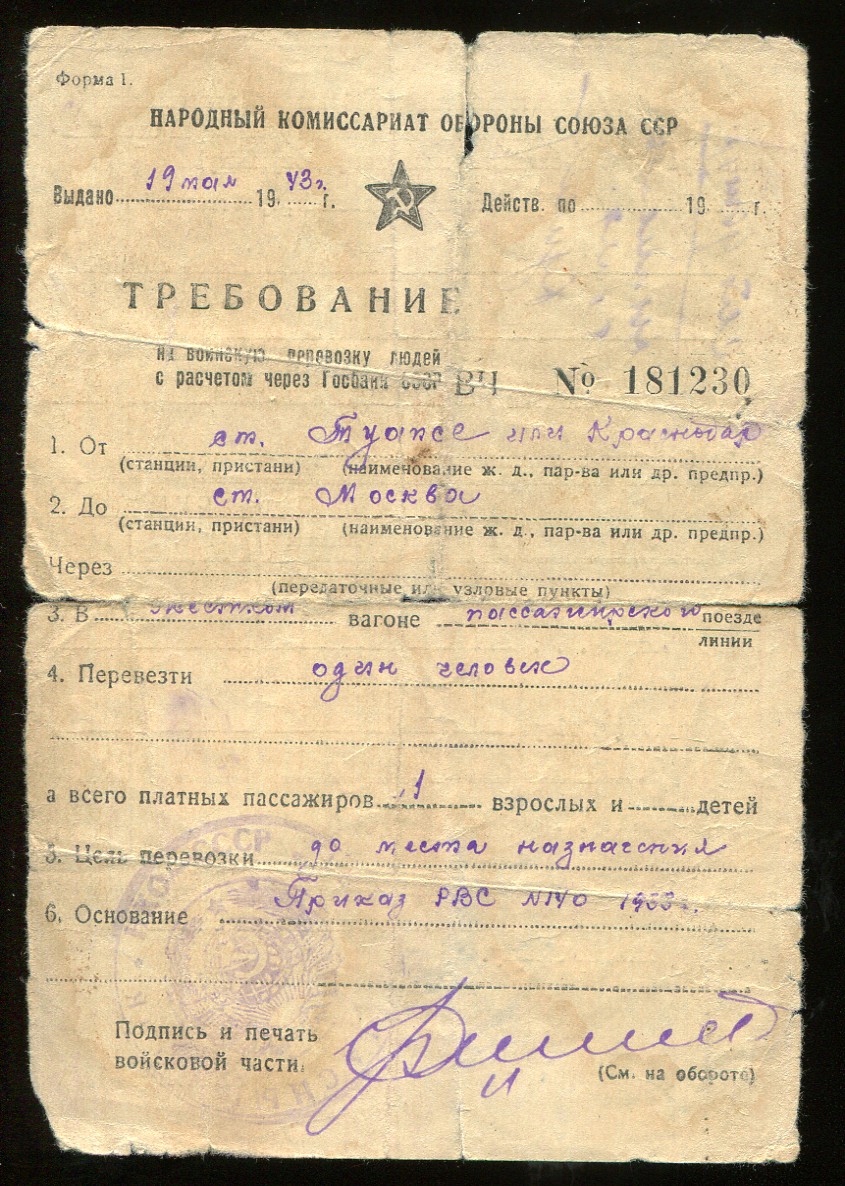 Форма 1.
НАРОДНЫЙ КОМИССАРИАТ ОБОРОНЫ СОЮЗА ССР
Выдано 19 мая 19 43 г. Действ. по 19 г.
ТРЕБОВАНИЕ
на воинскую перевозку людей
с расчетом через Госбанк СССР ВЧ № 181230
1. От ст. Туапсе или Краснодар
(станции, пристани) (наименование ж. д., пар-ва или др. предпр.)
2. До ст. Москва
(станции, пристани) (наименование ж. д., пар-ва или др. предпр.)
Через
(передаточные или узловые пункты)
3. В жестком вагоне пассажирского поезде
линии
4. Перевезти один человек
а всего платных пассажиров 1 взрослых и детей
5. Цель перевозки до места назначения
6. Основание Приказ РВС №140 1933 г.
Подпись и печать
войсковой части
(См. на обороте)